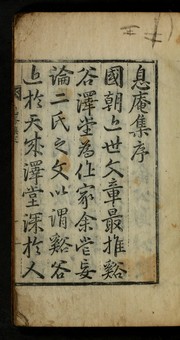 息庵集序
國朝上世文章最推谿
谷澤堂爲作家余嘗妄
論二氏之文以謂谿谷
近於天成澤堂深於人